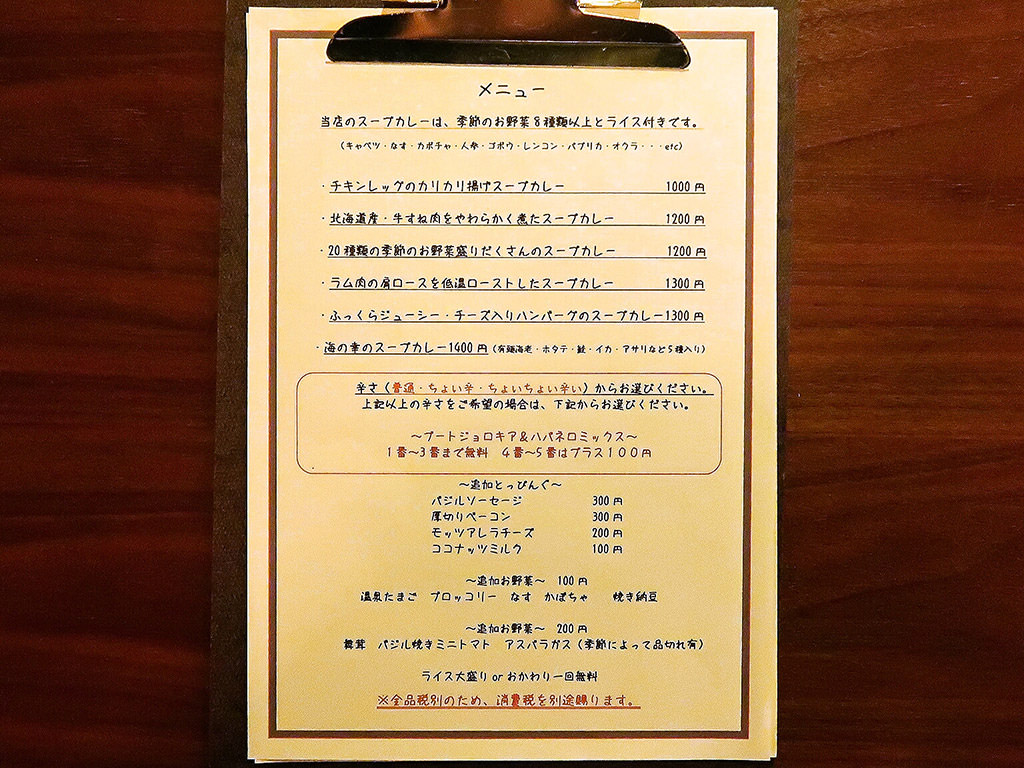 メニュー
当店のスープカレーは、季節のお野菜8種類以上とライス付きです。
(キャベツ・なす・カボチャ・人参・ゴボウ・レンコン・パプリカ・オクラ・・・etc)
・チキンレッグのカリカリ揚げスープカレー 1000円
・北海道産・牛すね肉をやわらかく煮たスープカレー 1200円
・20種類の季節のお野菜盛りだくさんのスープカレー 1200円
・ラム肉の肩ロースを低温ローストしたスープカレー 1300円
・ふっくらジューシー・チーズ入りハンバーグのスープカレー1300円
・海の幸のスープカレー1400円(有頭海老・ホタテ・鮭・イカ・アサリなど5種入り)
辛さ(普通・ちょい辛・ちょいちょい辛い)からお選びください。
上記以上の辛さをご希望の場合は、下記からお選びください。
～ブートジョロキア&ハバネロミックス～
1番～3番まで無料 4番～5番はプラス100円
～追加とっぴんぐ～
バジルソーセージ 300円
厚切りベーコン 300円
モッツアレラチーズ 200円
ココナッツミルク 100円
～追加お野菜～ 100円
温泉たまご ブロッコリー なす かぼちゃ 焼き納豆
～追加お野菜～ 200円
舞茸 バジル焼きミニトマト アスパラガス(季節によって品切れ有)
ライス大盛り or おかわり一回無料
※全品税別のため、消費税を別途賜ります。